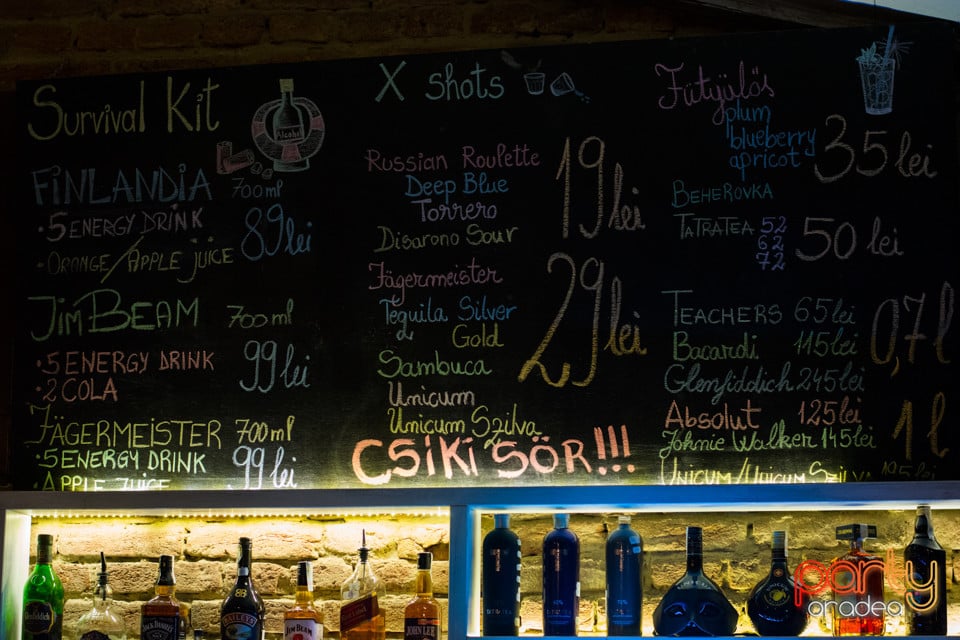 Survival Kit
Alcohol
FINLANDIA 700 ml
• 5 ENERGY DRINK
89 lei
• ORANGE/APPLE JUICE
JIM BEAM 700 ml
• 5 ENERGY DRINK
99 lei
• 2 COLA
JÄGERMEISTER 700 ml
• 5 ENERGY DRINK
99 lei
APPLE JUICE
X shots
Russian Roulette
Deep Blue
Torrero
Disarono Sour
19 lei
Jägermeister
Tequila Silver
Gold
Sambuca
Unicum
Unicum Szilva
29 lei
CSIKI SÖR!!!
Fütyülős
plum
blueberry
apricot
35 lei
BEHEROVKA
TATRATEA 52
62
72
50 lei
TEACHERS 65 lei
Bacardi 115 lei
Glenfiddich 245 lei
0,7 l
Absolut 125 lei
Johnie Walker 145 lei
1 l
UNICUM/UNICUM SZILVA 195 lei
Glenfiddich
JACK DANIEL'S
BAILEYS
JIM BEAM
JOHN LEE
party
oradea